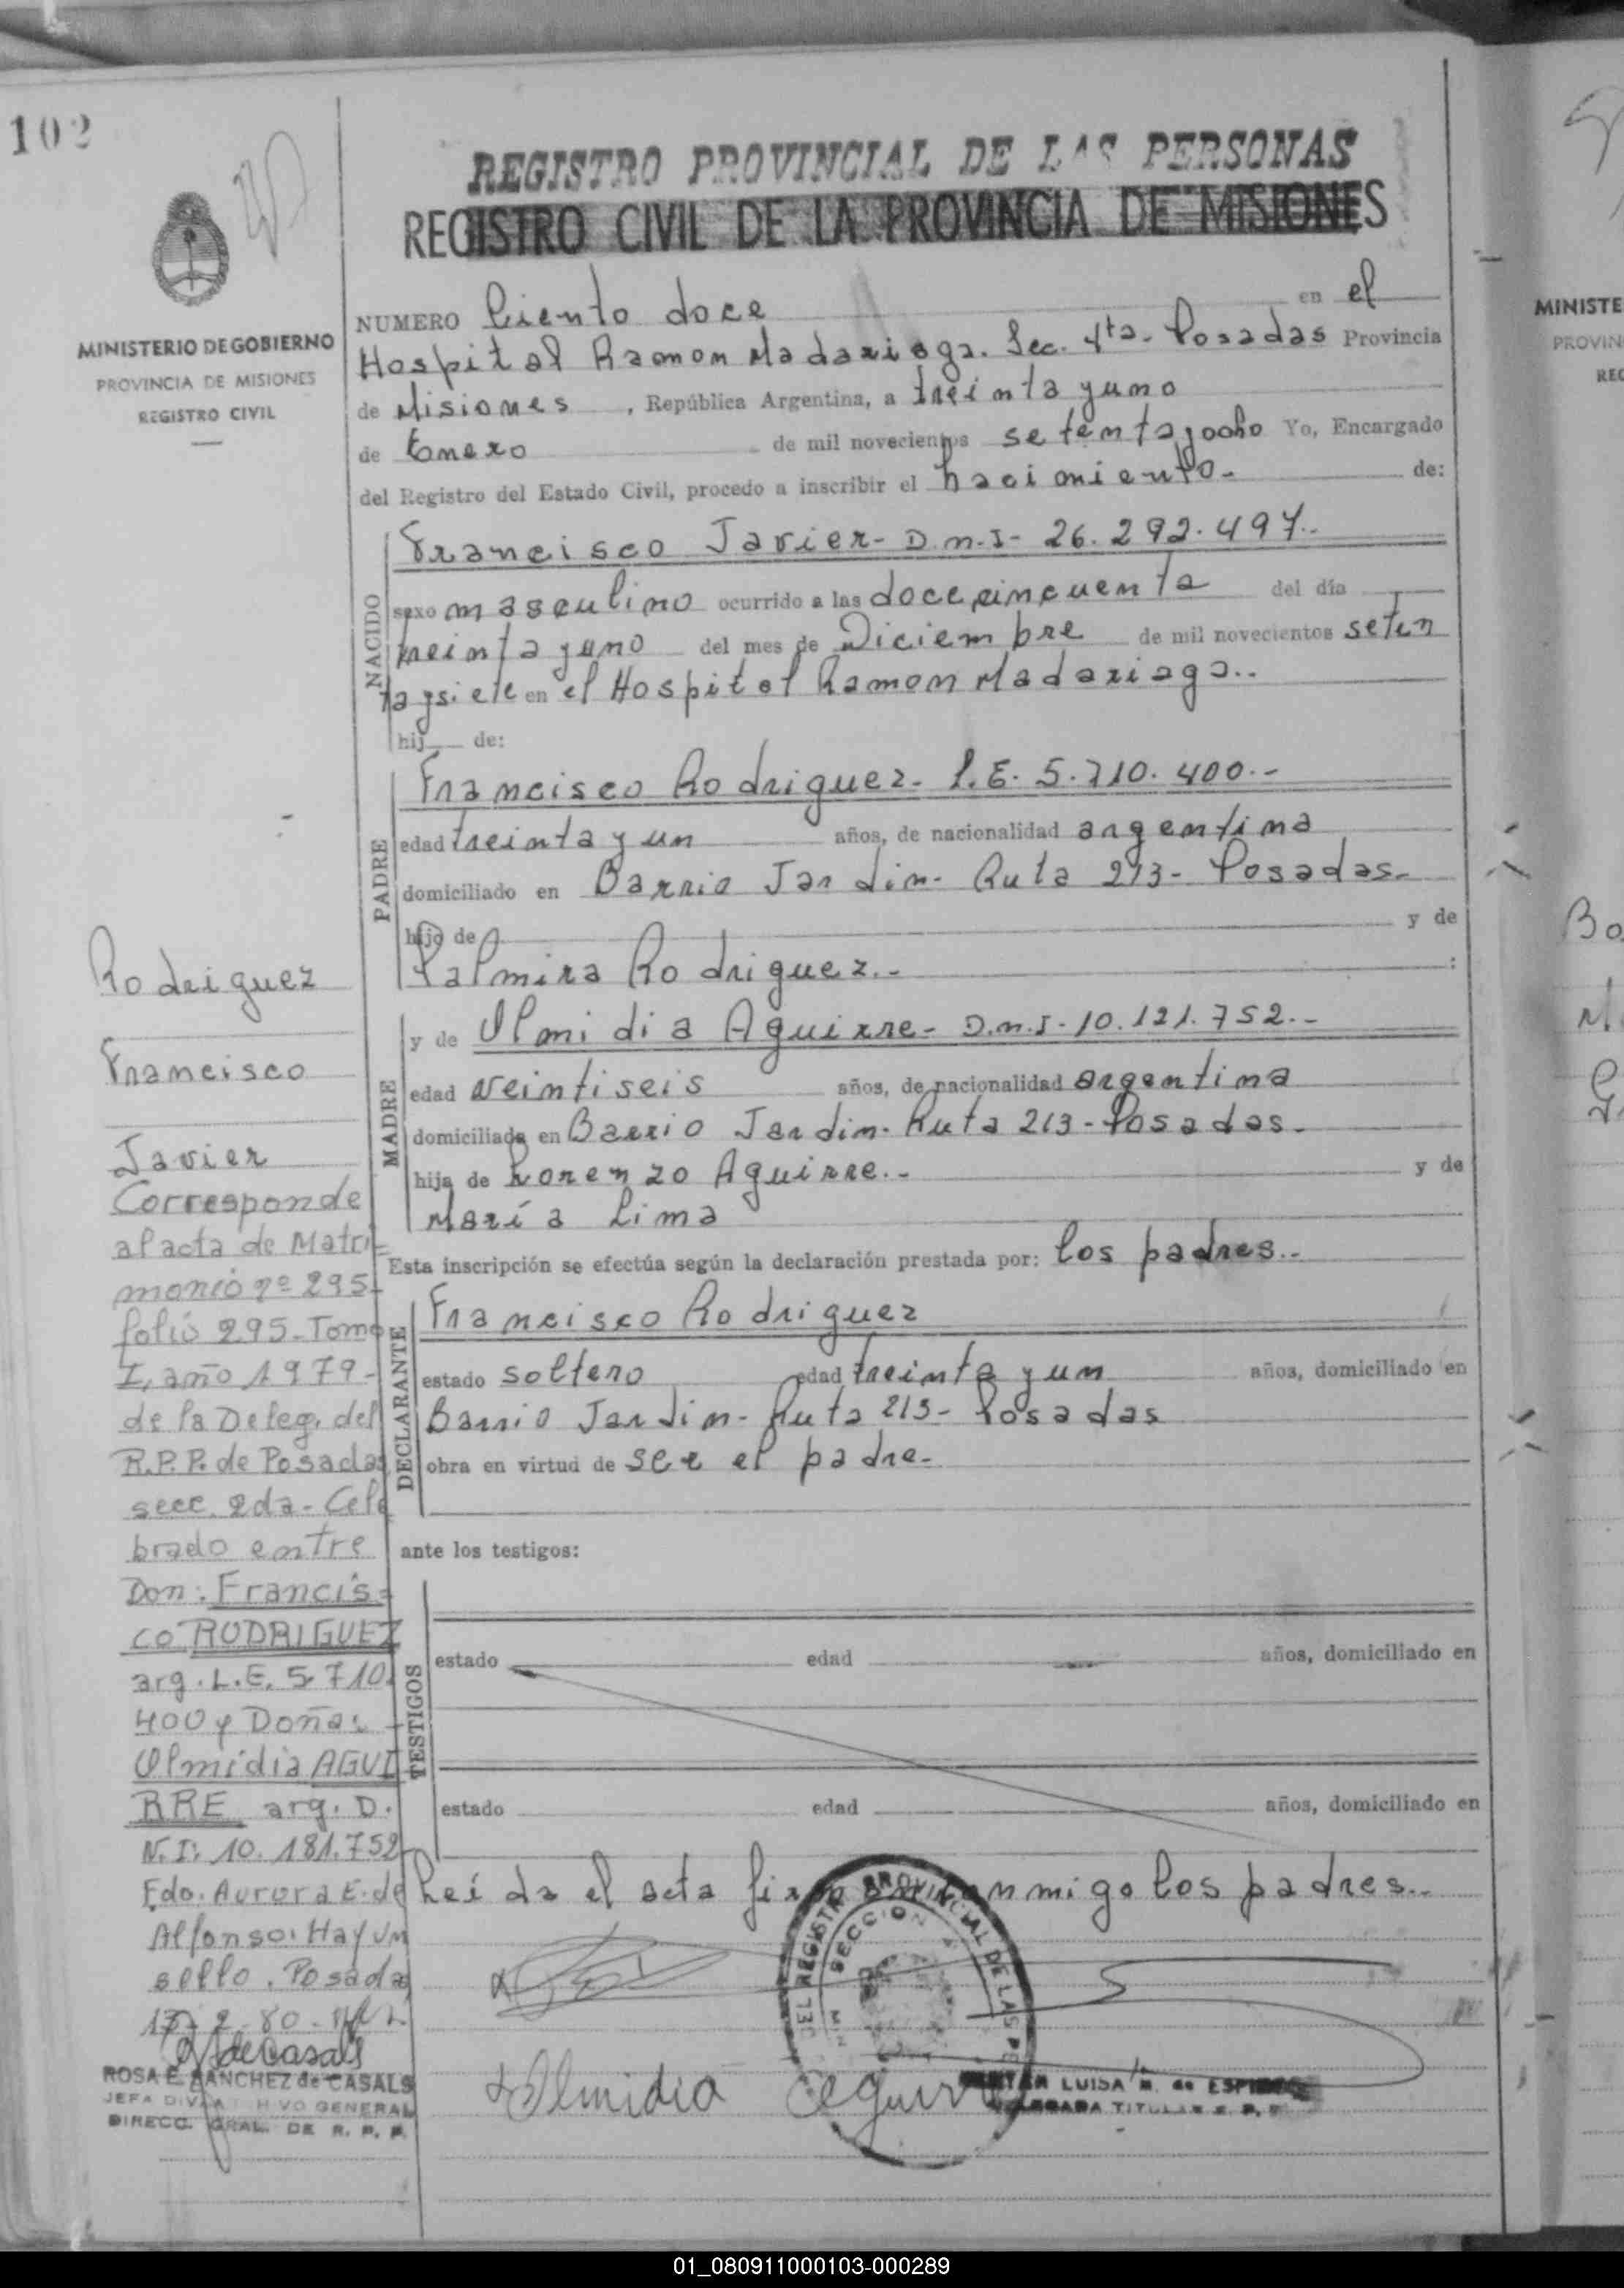 102
REGISTRO PROVINCIAL DE LAS PERSONAS
REGISTRO CIVIL DE LA PROVINCIA DE MISIONES
MINISTERIO DE GOBIERNO
PROVINCIA DE MISIONES
REGISTRO CIVIL
NUMERO Ciento doce en el
Hospital Ramon Madariaga. Sec. 4ta. Posadas Provincia
de Misiones, República Argentina, a treinta y uno
de Enero de mil novecientos setenta y ocho Yo, Encargado
del Registro del Estado Civil, procedo a inscribir el nacimiento.- de:
NACIDO
Francisco Javier- D.N.I- 26.292.497.-
sexo masculino ocurrido a las doce cincuenta del día
treinta y uno del mes de Diciembre de mil novecientos seten
ta y siete en el Hospital Ramon Madariaga..
hij de:
PADRE
Francisco Rodriguez- L.E. 5.710.400.-
edad treinta y un años, de nacionalidad argentina
domiciliado en Barrio Jardin- Ruta 213- Posadas.-
hijo de y de
Palmira Rodriguez.- :
MADRE
y de Olmidia Aguirre- D.N.I- 10.121.752.-
edad veintiseis años, de nacionalidad argentina
domiciliada en Barrio Jardin- Ruta 213- Posadas.
hija de Lorenzo Aguirre.- y de
María Lima
Esta inscripción se efectúa según la declaración prestada por: los padres.-
DECLARANTE
Francisco Rodriguez
estado soltero edad treinta y un años, domiciliado en
Barrio Jardin- Ruta 213- Posadas
obra en virtud de ser el padre-
ante los testigos:
TESTIGOS
estado edad años, domiciliado en
estado edad años, domiciliado en
Leída el acta firman conmigo los padres..
Olmidia Aguirre
DEL REGISTRO PROVINCIAL DE LAS PE
SECCION 4
LUISA M. de ESPI
TITULAR R. P. P.
Rodriguez
Francisco
Javier
Corresponde
al acta de Matri-
monio nº 295-
folio 295- Tomo
I, año 1979-
de la Deleg. del
R.P.P. de Posadas
secc. 2da- Cele
brado entre
Don: Francis-
co RODRIGUEZ
arg. L.E. 5 710.
400 y Doña:
Olmidia AGUI
RRE arg. D.
N.I: 10.181.752
Fdo. Aurora E. de
Alfonso. Hay un
sello. Posadas
2-80-
de Casals
ROSA E. SANCHEZ de CASALS
JEFA DIV. ARCHIVO GENERAL
DIRECC. GRAL. DE R. P. P.
MINISTE
PROVIN
REG
Bo
01_080911000103-000289